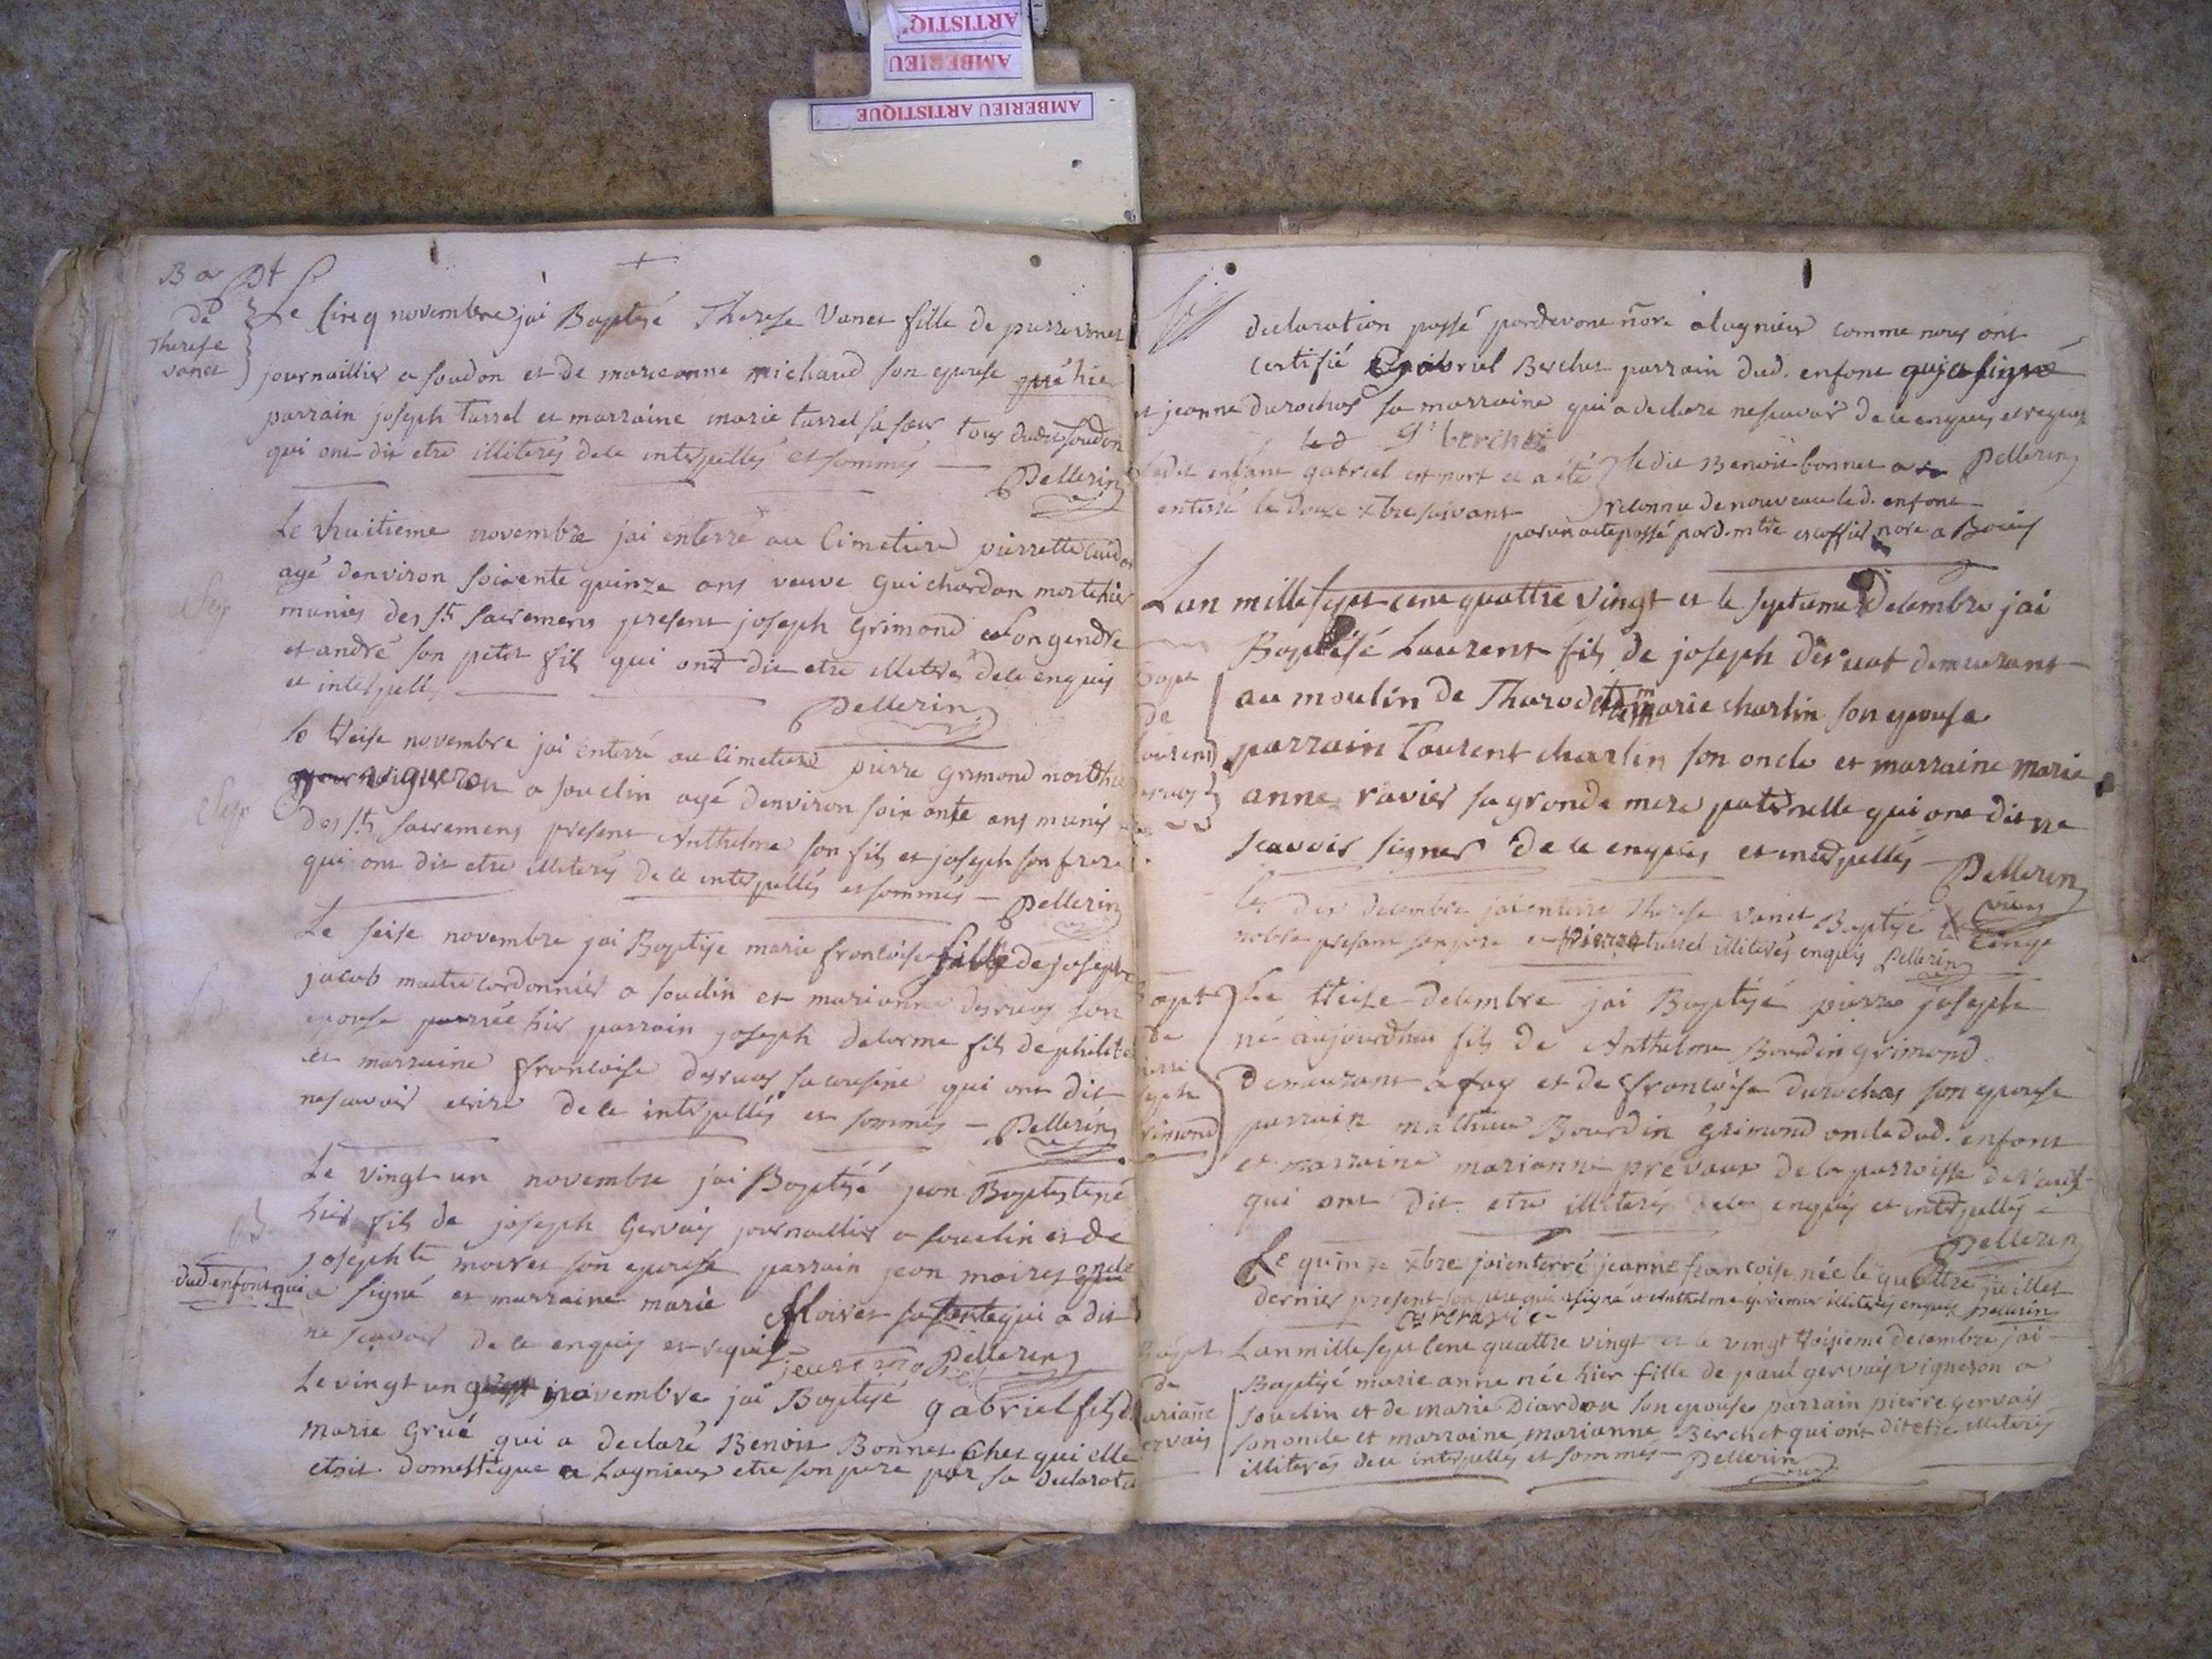 ARTISTIQ'
AMBERIEU
AMBERIEU ARTISTIQUE
Bapt
de
Therese
vanet
Le cinq novembre jai Baptisé Therese Vanet fille de pierre vanet
journaillier a soudon et de marieanne michaud son epouse née hier
parrain joseph Tarrel et marraine marie tarrel sa sœur tous dudit soudon
qui ont dit etre illiterés de ce interpellés et sommés — Pellerin
Le huitieme novembre jai enterré au Cimetiere pierrette
agé denviron soixente quinze ans veuve guichardon morte hier
munies des sts sacremens present joseph Grimond son gendre
et andré son petit fils qui ont dit etre illiterés de ce enquis
et interpellés
Pellerin
le treise novembre jai enterré au Cimetiere pierre grimond mort hier
vigneron a souclin agé denviron soixante ans munis
des sts sacremens present Anthelme son fils et joseph son frere
qui ont dit etre illiterés de ce interpellés et sommés — Pellerin
Le seise novembre jai Baptise marie francoise fille de joseph
jacob maitre cordonnier a souclin et marianne desruas son
epouse née hier parrain joseph delorme fils de philite
et marraine francoise desruas sa cousine qui ont dit
ne scavoir ecrire de ce interpellés et sommés — Pellerin
Le vingt un novembre jai Baptisé jean Baptiste né
hier fils de joseph Gervais journaillier a souclin et de
josephte moiret son epouse parrain jean moiret oncle
dud. enfant qui a signé et marraine marie Moiret sa tante qui a dit
ne scavoir de ce enquis et requis
Pellerin
Le vingt un novembre jai Baptisé gabriel fils de
marie Grué qui a declaré Benoit Bonnet Ches qui elle
etoit domestique a Lagnieux etre son pere par sa declarat
declaration passé pardevant nore a lagnieu comme nous ont
certifié Gabriel Berchet parrain dud. enfant qui a signé
et jeanne durochas sa marraine qui a declaré ne scavoir de ce enquis et requis
led gl berchet
ledit enfant gabriel est mort et a été
enterré le douze xbre suivant
ledit Benoit bonnet a Pellerin
reconnu de nouveau led. enfant
par un acte passé pard. mtre escoffier nore a
Lan mille sept cent quattre vingt et le septieme Decembre jai
Baptisé Laurent fils de joseph desruat demeurant
au moulin de Tharodet marie charlin son epouse
parrain Laurent charlin son oncle et marraine marie
anne ravier sa grande mere paternelle qui ont dit ne
scavoir signer de ce enquis et interpellés — Pellerin
Bapt
de
Laurent
Le dix decembre jai enterré Therese vanet Baptisé le cinq
nobre present son pere et pierre tarrel illiterés enquis Pellerin
Le treise decembre jai Baptisé pierre joseph
né aujourdhui fils de Anthelme Bourdin grimond
demeurant a fay et de francoise durochas son epouse
parrain mathieu Bourdin grimond oncle dud. enfant
et marraine marianne prevaux de la parroisse de
qui ont dit etre illiterés de ce enquis et interpellés
Pellerin
Le quinze xbre jai enterré jeanne francoise née le quattre juillet
dernier present son pere qui a signé et Anthelme illiterés enquis Pellerin
Lan mille sept cent quattre vingt et le vingt troisieme decembre jai
Baptisé marie anne née hier fille de paul gervais vigneron a
souclin et de marie Diardon son epouse parrain pierre gervais
son oncle et marraine marianne Berchet qui ont dit etre illiterés
illiterés de ce interpellés et sommés — Pellerin